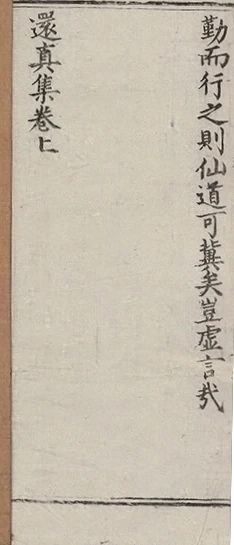 勤而行之則仙道可冀矣豈虛言哉
還真集卷上